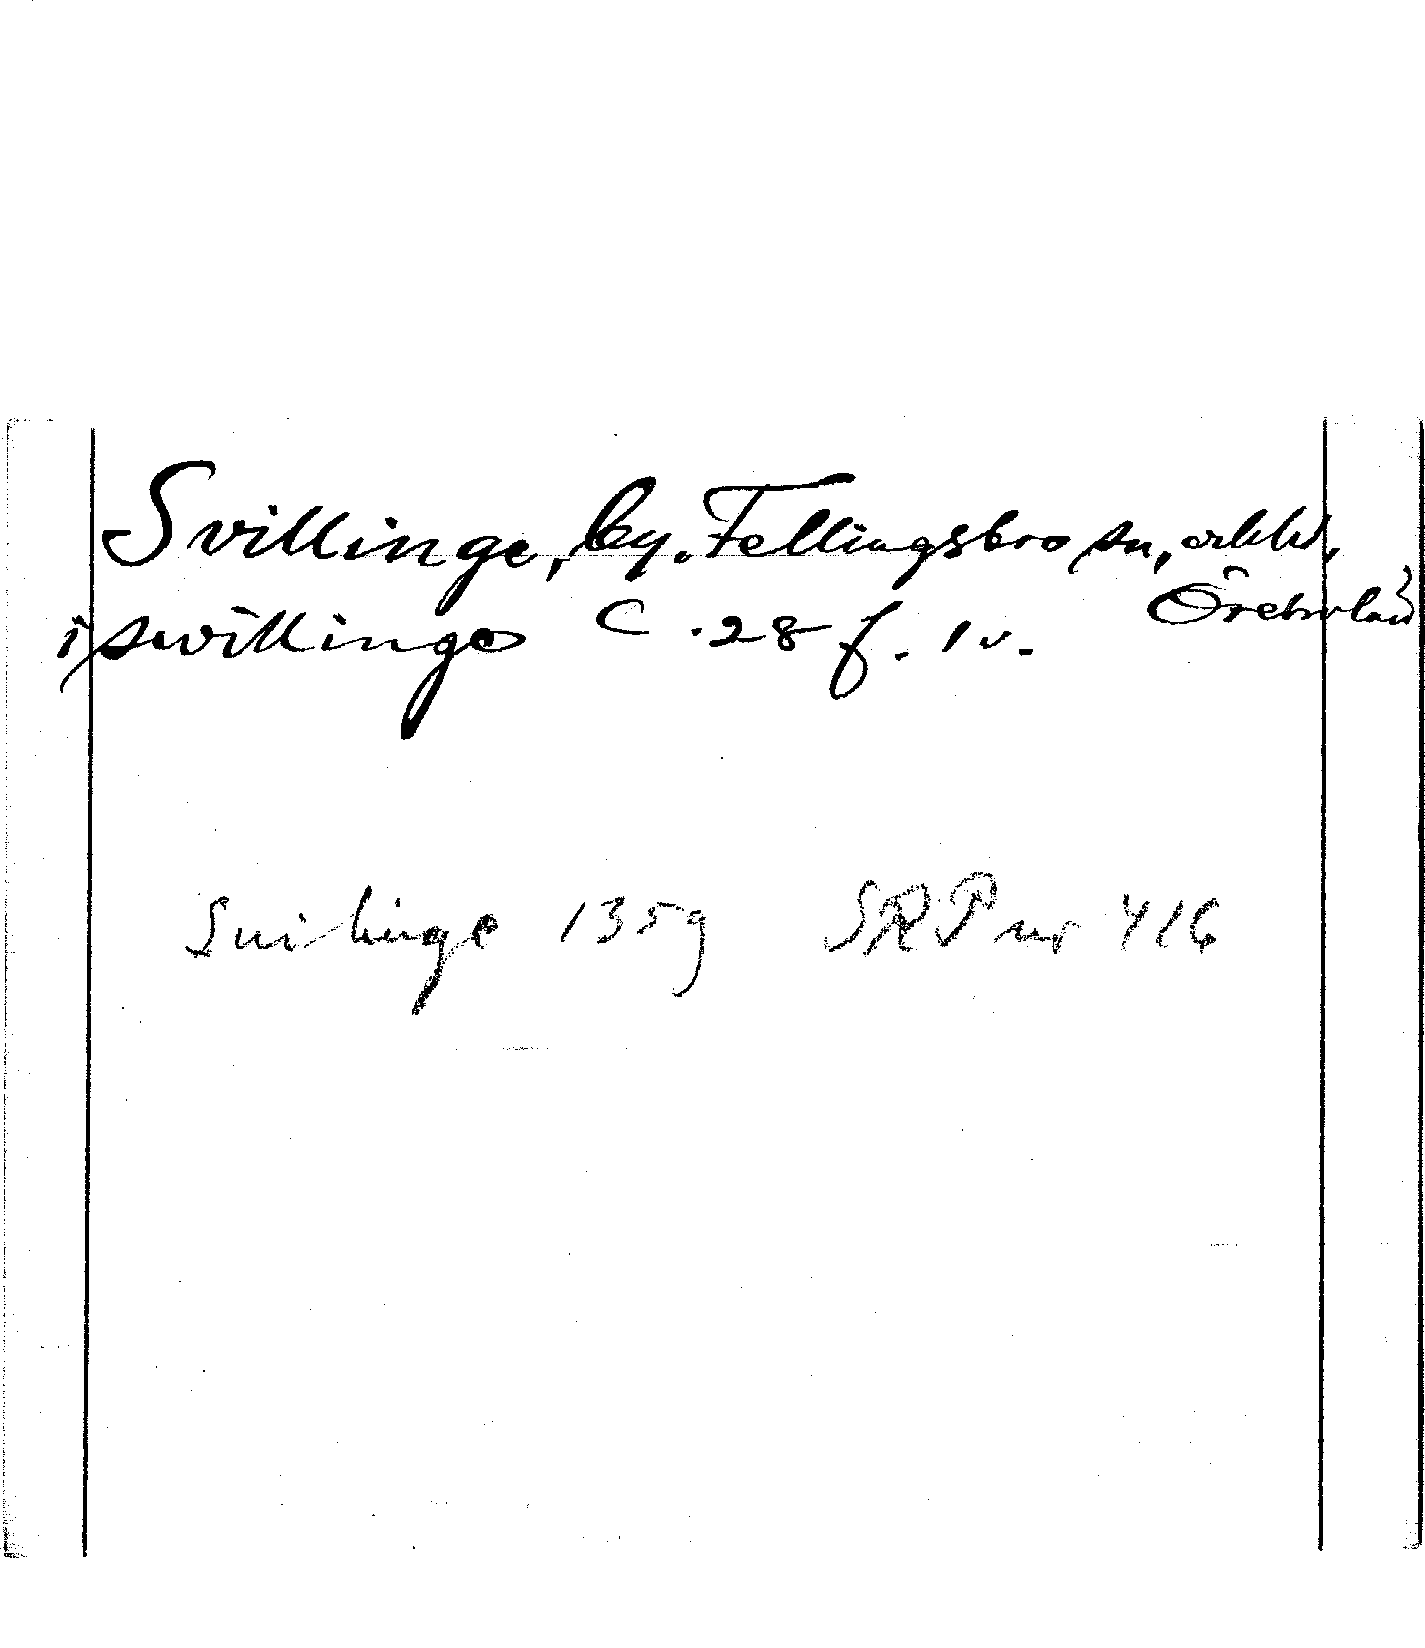 Svillinge, by. Fellingsbro sn,
Örebro län
i swillinge C. 28 f. 1v.
Suilinge 1359 SRP nr 416